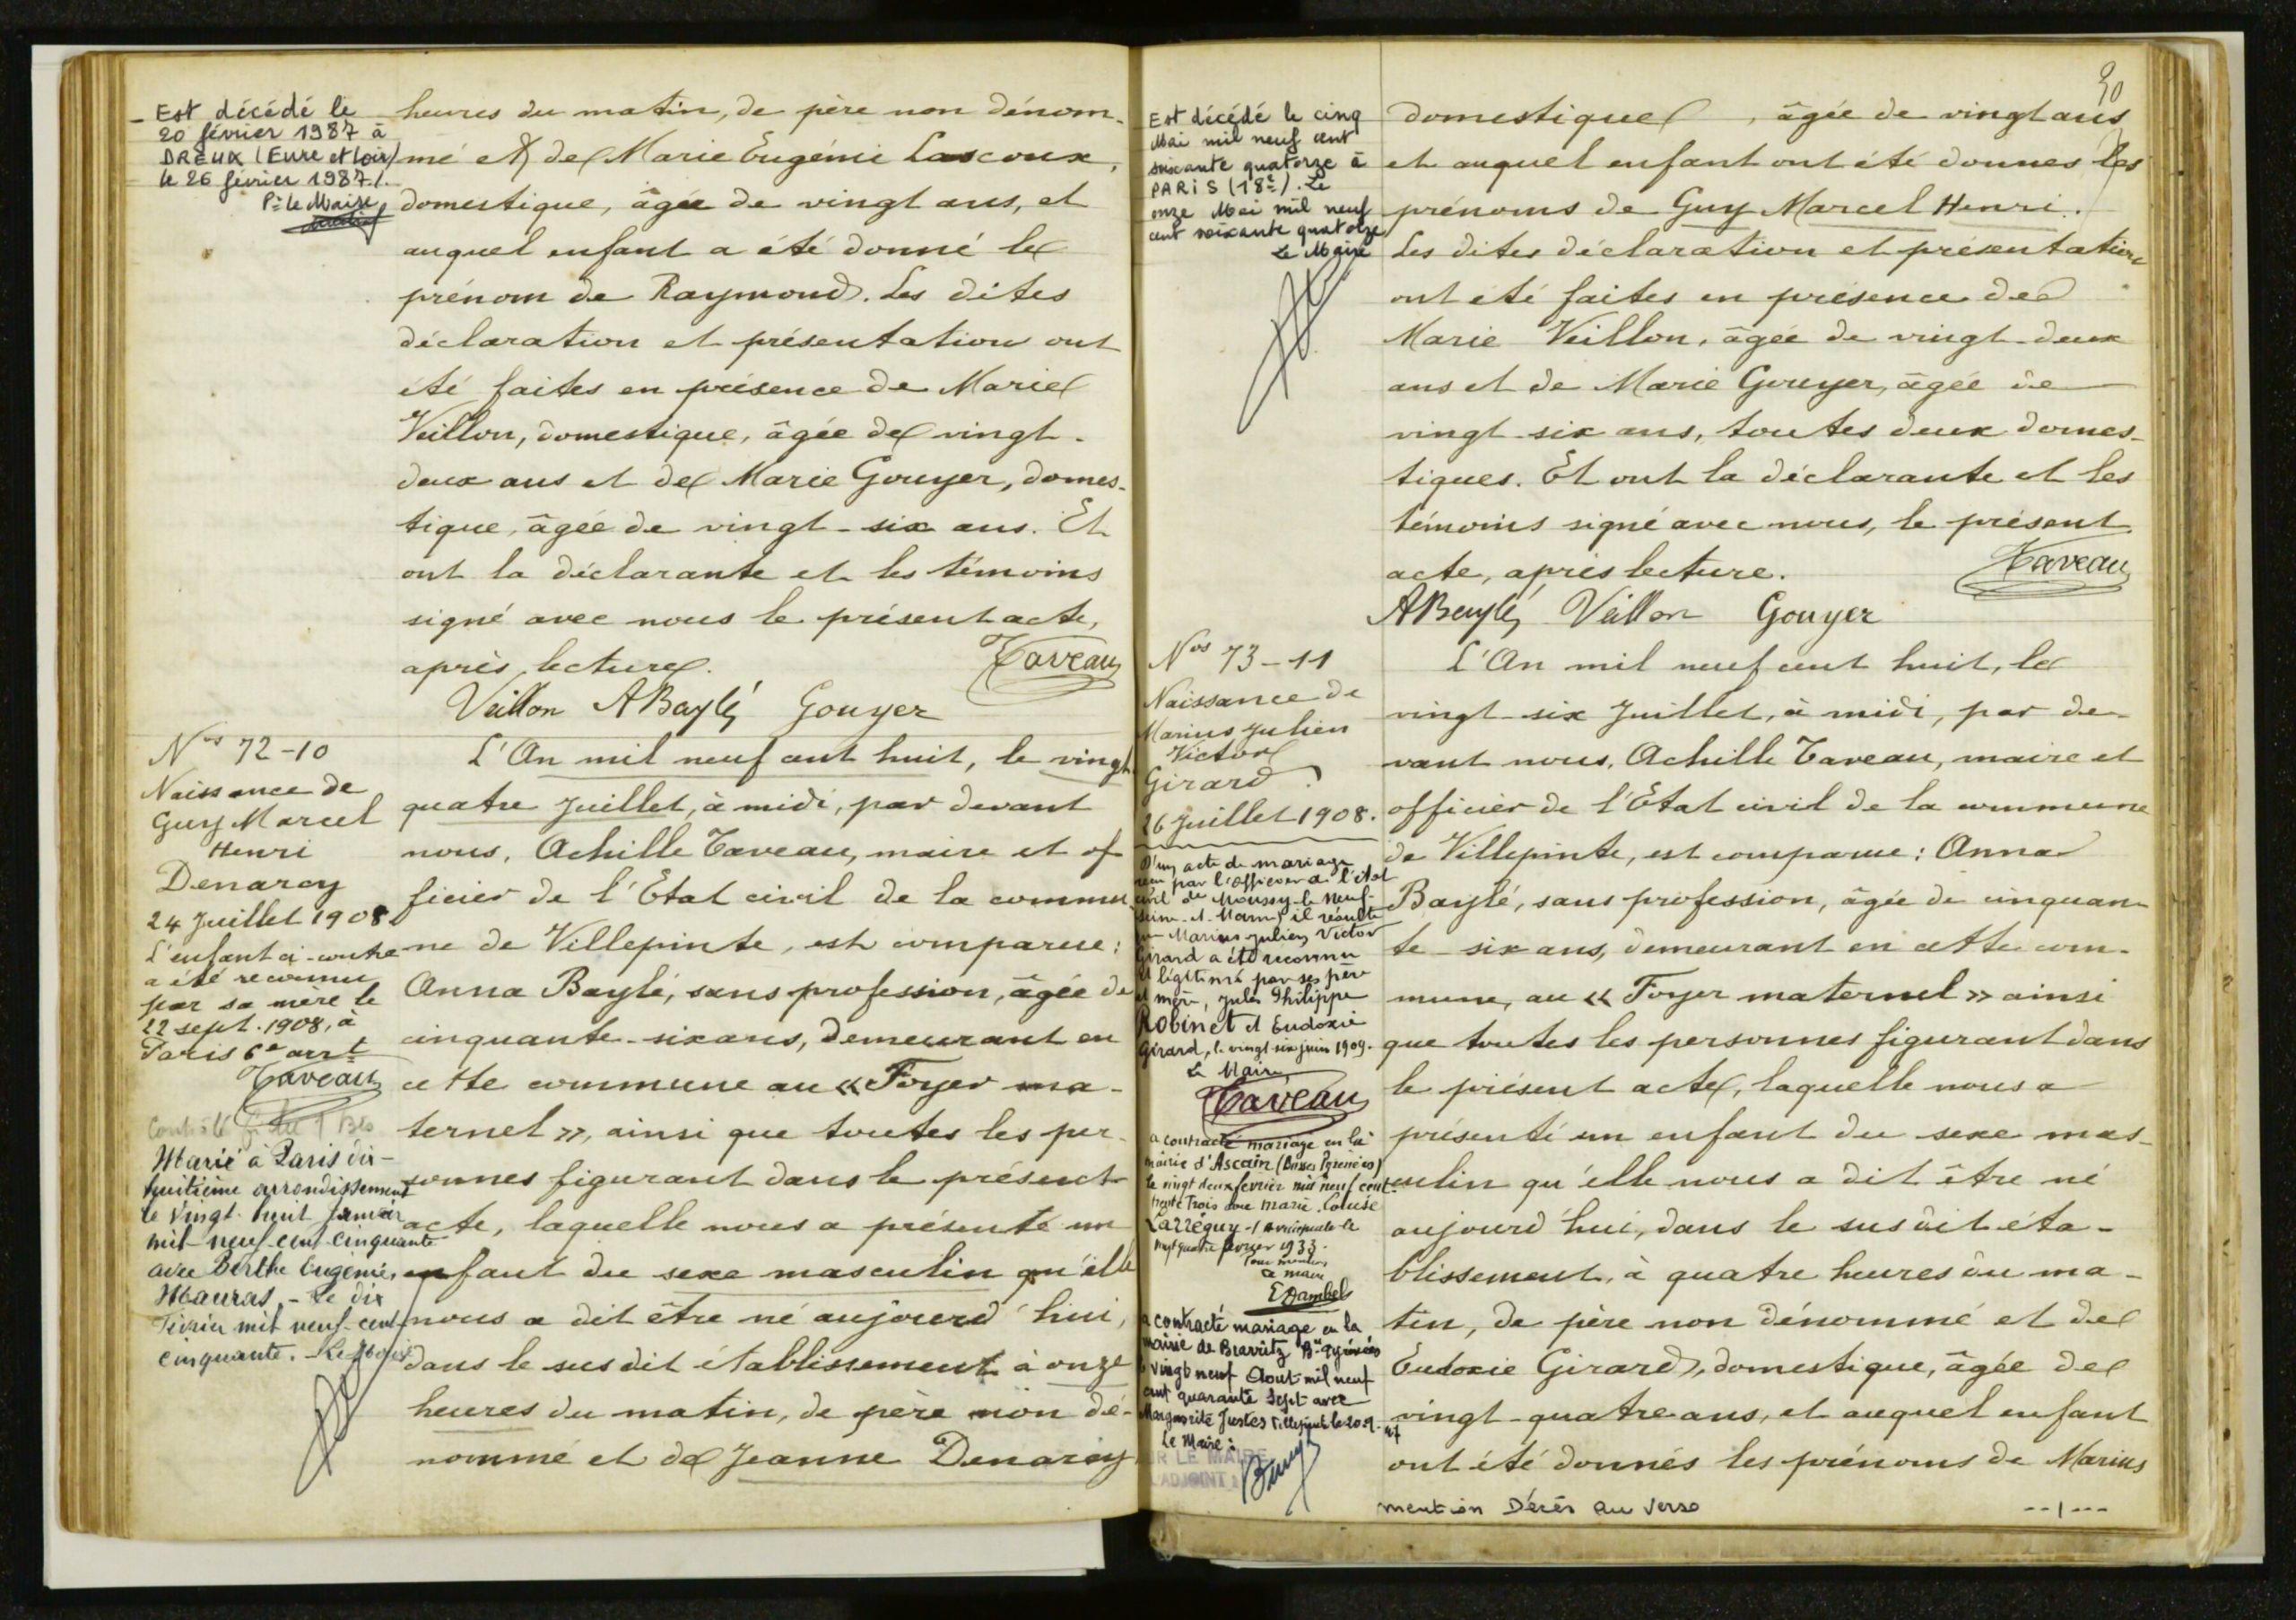 Est décédé le
20 février 1987 à
DREUX (Eure et Loir)
le 26 février 1987./.
Pr le Maire
heures du matin, de père non dénom-
mé et de Marie Eugénie Lascoux,
domestique, âgée de vingt ans, et
auquel enfant a été donné le
prénom de Raymond. Les dites
déclaration et présentation ont
été faites en présence de Marie
Veillon, domestique, âgée de vingt-
deux ans et de Marie Gouyer, domes-
tique, âgée de vingt-six ans. Et
ont la déclarante et les témoins
signé avec nous le présent acte,
après lecture. Taveau
Veillon ABaylé Gouyer
Nos 72-10
Naissance de
Guy Marcel
Henri
Denarcy
24 Juillet 1908
L'enfant ci-contre
a été reconnu
par sa mère le
22 sept. 1908, à
Paris 6e arrt
Taveau
Contrôlé
Marié à Paris dix-
huitième arrondissement
le Vingt huit Janvier
mil-neuf-cent-cinquante
avec Berthe Eugénie,
Mauras. - Le dix
Février mil neuf-cent-
cinquante. Le Maire
L'An mil neuf cent huit, le vingt
quatre Juillet, à midi, par devant
nous, Achille Taveau, maire et of
ficier de l'Etat civil de la commu
ne de Villepinte, est comparue:
Anna Baylé, sans profession, âgée de
cinquante-six ans, demeurant en
cette commune au « Foyer ma-
ternel », ainsi que toutes les per-
sonnes figurant dans le présent
acte, laquelle nous a présenté un
enfant du sexe masculin qu'elle
nous a dit être né aujourd'hui,
dans le susdit établissement à onze
heures du matin, de père non dé-
nommé et de Jeanne Denarcy
Est décédé le cinq
Mai mil neuf cent
soixante quatorze à
PARIS (18e). Le
onze Mai mil neuf
cent soixante quatorze
Le Maire
30
domestique, âgée de vingt ans
et auquel enfant ont été donnés les
prénoms de Guy Marcel Henri.
Les dites déclaration et présentation
ont été faites en présence de
Marie Veillon, âgée de vingt-deux
ans et de Marie Gouyer, âgée de
vingt-six ans, toutes deux domes-
tiques. Et ont la déclarante et les
témoins signé avec nous, le présent
acte, après lecture. Taveau
ABaylé Veillon Gouyer
Nos 73-11
Naissance de
Marius Julien
Victor
Girard
26 Juillet 1908.
D'un acte de mariage
reçu par l'officier de l'état
civil de Moussy-le-Neuf
(Seine-et-Marne) il résulte
que Marius Julien Victor
Girard a été reconnu
et légitimé par ses père
et mère, Jules Philippe
Robinet et Eudoxie
Girard, le vingt six juin 1909.
Le Maire
Taveau
a contracté mariage en la
mairie d'Ascain (Basses Pyrénées)
le vingt deux février mil neuf cent
trente Trois avec Marie Louise
Larréguy
vingt quatre février 1933.
Pour mention
Le maire
a contracté mariage en la
mairie de Biarritz Bses Pyrénées
le vingt neuf Aout mil neuf
cent quarante Sept avec
Marguerite Justes Villepinte le 20.9.47
Le Maire:
POUR LE MAIRE
L'ADJOINT
L'An mil neuf cent huit, le
vingt-six Juillet, à midi, par de-
vant nous, Achille Taveau, maire et
officier de l'Etat civil de la commune
de Villepinte, est comparue: Anna
Baylé, sans profession, âgée de cinquan-
te-six ans, demeurant en cette com-
mune, au « Foyer maternel » ainsi
que toutes les personnes figurant dans
le présent acte, laquelle nous a
présenté un enfant du sexe mas-
culin qu'elle nous a dit être né
aujourd'hui, dans le susdit éta-
blissement, à quatre heures du ma-
tin, de père non dénommé et de
Eudoxie Girard, domestique, âgée de
vingt-quatre ans, et auquel enfant
ont été donnés les prénoms de Marius
mention Décès au Verso
--/---